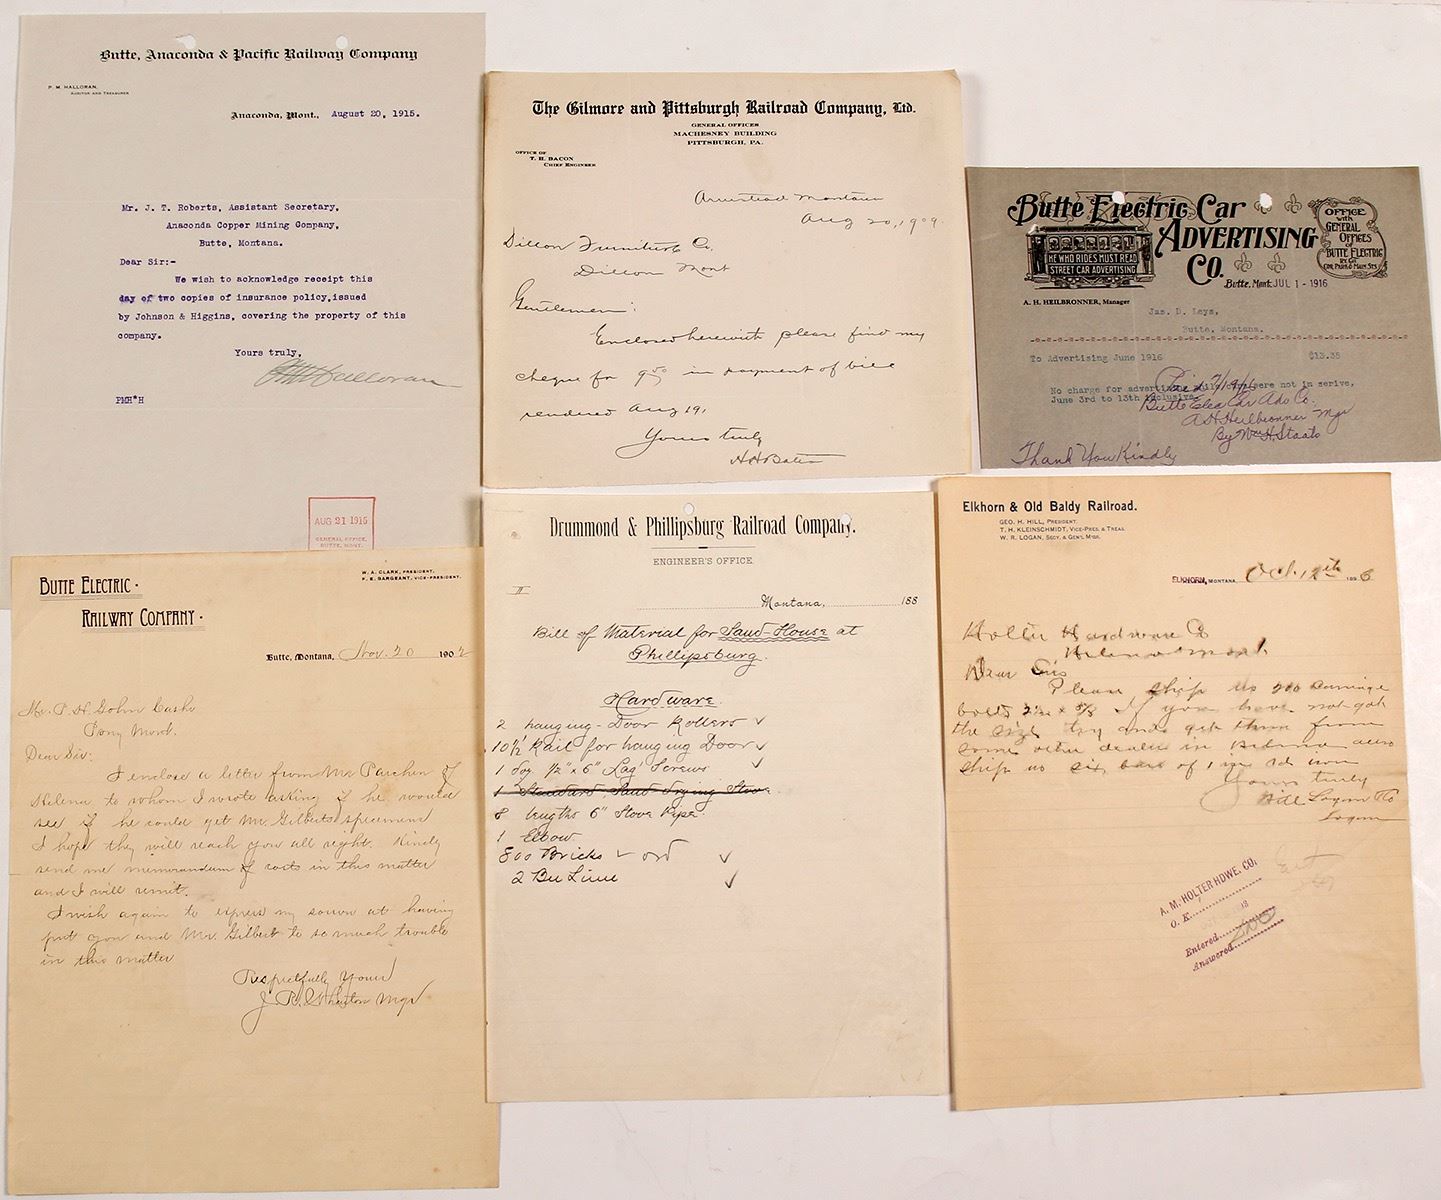 Butte, Anaconda & Pacific Railway Company
P. M. HALLORAN,
AUDITOR AND TREASURER
Anaconda, Mont., August 20, 1915.
Mr. J. T. Roberts, Assistant Secretary,
Anaconda Copper Mining Company,
Butte, Montana.
Dear Sir:-
We wish to acknowledge receipt this
day of two copies of insurance policy,issued
by Johnson & Higgins, covering the property of this
company.
Yours truly,
PM Halloran
PMH*H
AUG 21 1915
GENERAL OFFICE,
BUTTE, MONT.
The Gilmore and Pittsburgh Railroad Company, Ltd.
GENERAL OFFICES
MACHESNEY BUILDING
PITTSBURGH, PA.
OFFICE OF
T. H. BACON
CHIEF ENGINEER
Armstead Montana
Aug 20, 1909.
Dillon Furniture Co.
Dillon Mont
Gentlemen:
Enclosed herewith please find my
cheque for 9.50 in payment of bill
rendered Aug 19,
Yours truly
H H Bates
Butte Electric Car
ADVERTISING
CO.
HE WHO RIDES MUST READ
STREET CAR ADVERTISING
OFFICE
with
GENERAL
OFFICES
OF
BUTTE ELECTRIC
RY CO
COR. PARK & MAIN STS
Butte, Mont. JUL 1 - 1916
A. H. HEILBRONNER, Manager
Jas. D. Leys,
Butte, Montana.
To Advertising June 1916 $13.35
No charge for advertising were not in serive,
June 3rd to 13th inclusive.
Paid 7/19/16
Butte Elec Car Ads Co.
A H Heilbronner Mgr
By Wm H. Staats
Thank You Kindly
BUTTE ELECTRIC
RAILWAY COMPANY
W. A. CLARK, PRESIDENT.
F. E. SARGEANT, VICE-PRESIDENT.
Butte, Montana, Nov. 20 1902
Mr. P. H. Gohn Cashr
Pony Mont.
Dear Sir:
I enclose a letter from Mr Parchen of
Helena to whom I wrote asking if he would
see if he could get Mr. Gilberts specimen
I hope they will reach you all right. Kindly
send me memorandum of costs in this matter
and I will remit.
I wish again to express my sorrow at having
put you and Mr. Gilbert to so much trouble
in this matter
Respectfully Yours
J. R. Wharton Mgr
Drummond & Phillipsburg Railroad Company.
ENGINEER'S OFFICE.
II
Montana, 188
Bill of Material for Sand-House at
Phillipsburg.
Hardware.
2 hanging-Door Rollers ✓
10½' Rail for hanging Door ✓
1 doz ½" x 6" Lag Screws ✓
1 Standard Sand Drying Stove.
8 lengths 6" Stove Pipe.
1 Elbow
800 Bricks ✓ ord ✓
2 Bu Lime ✓
Elkhorn & Old Baldy Railroad.
GEO. H. HILL, PRESIDENT.
T. H. KLEINSCHMIDT, VICE-PRES. & TREAS.
W. R. LOGAN, SECY. & GEN'L MGR.
ELKHORN, MONTANA, Oct. 12th 1896
Holter Hardware Co
Helena Mont.
Dear Sirs
Please ship us 200 carriage
bolts If you have not got
the size try and get them from
some other dealer in Helena also
ship us six bars of
Yours truly
Hill Logan Co
Logan
A. M. HOLTER HDWE. CO.
O. K.
Entered
Answered